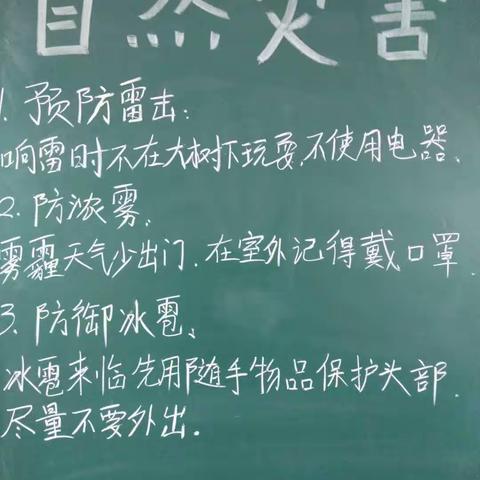 自然灾害
1. 预防雷击:
响雷时不在大树下玩耍,不使用电器、
2. 防浓雾、
雾霾天气少出门.在室外记得戴口罩.
3. 防御冰雹、
冰雹来临先用随手物品保护头部.
尽量不要外出.